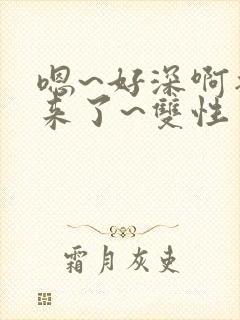 嗯~好深啊
来了~雙性
霜月灰吏